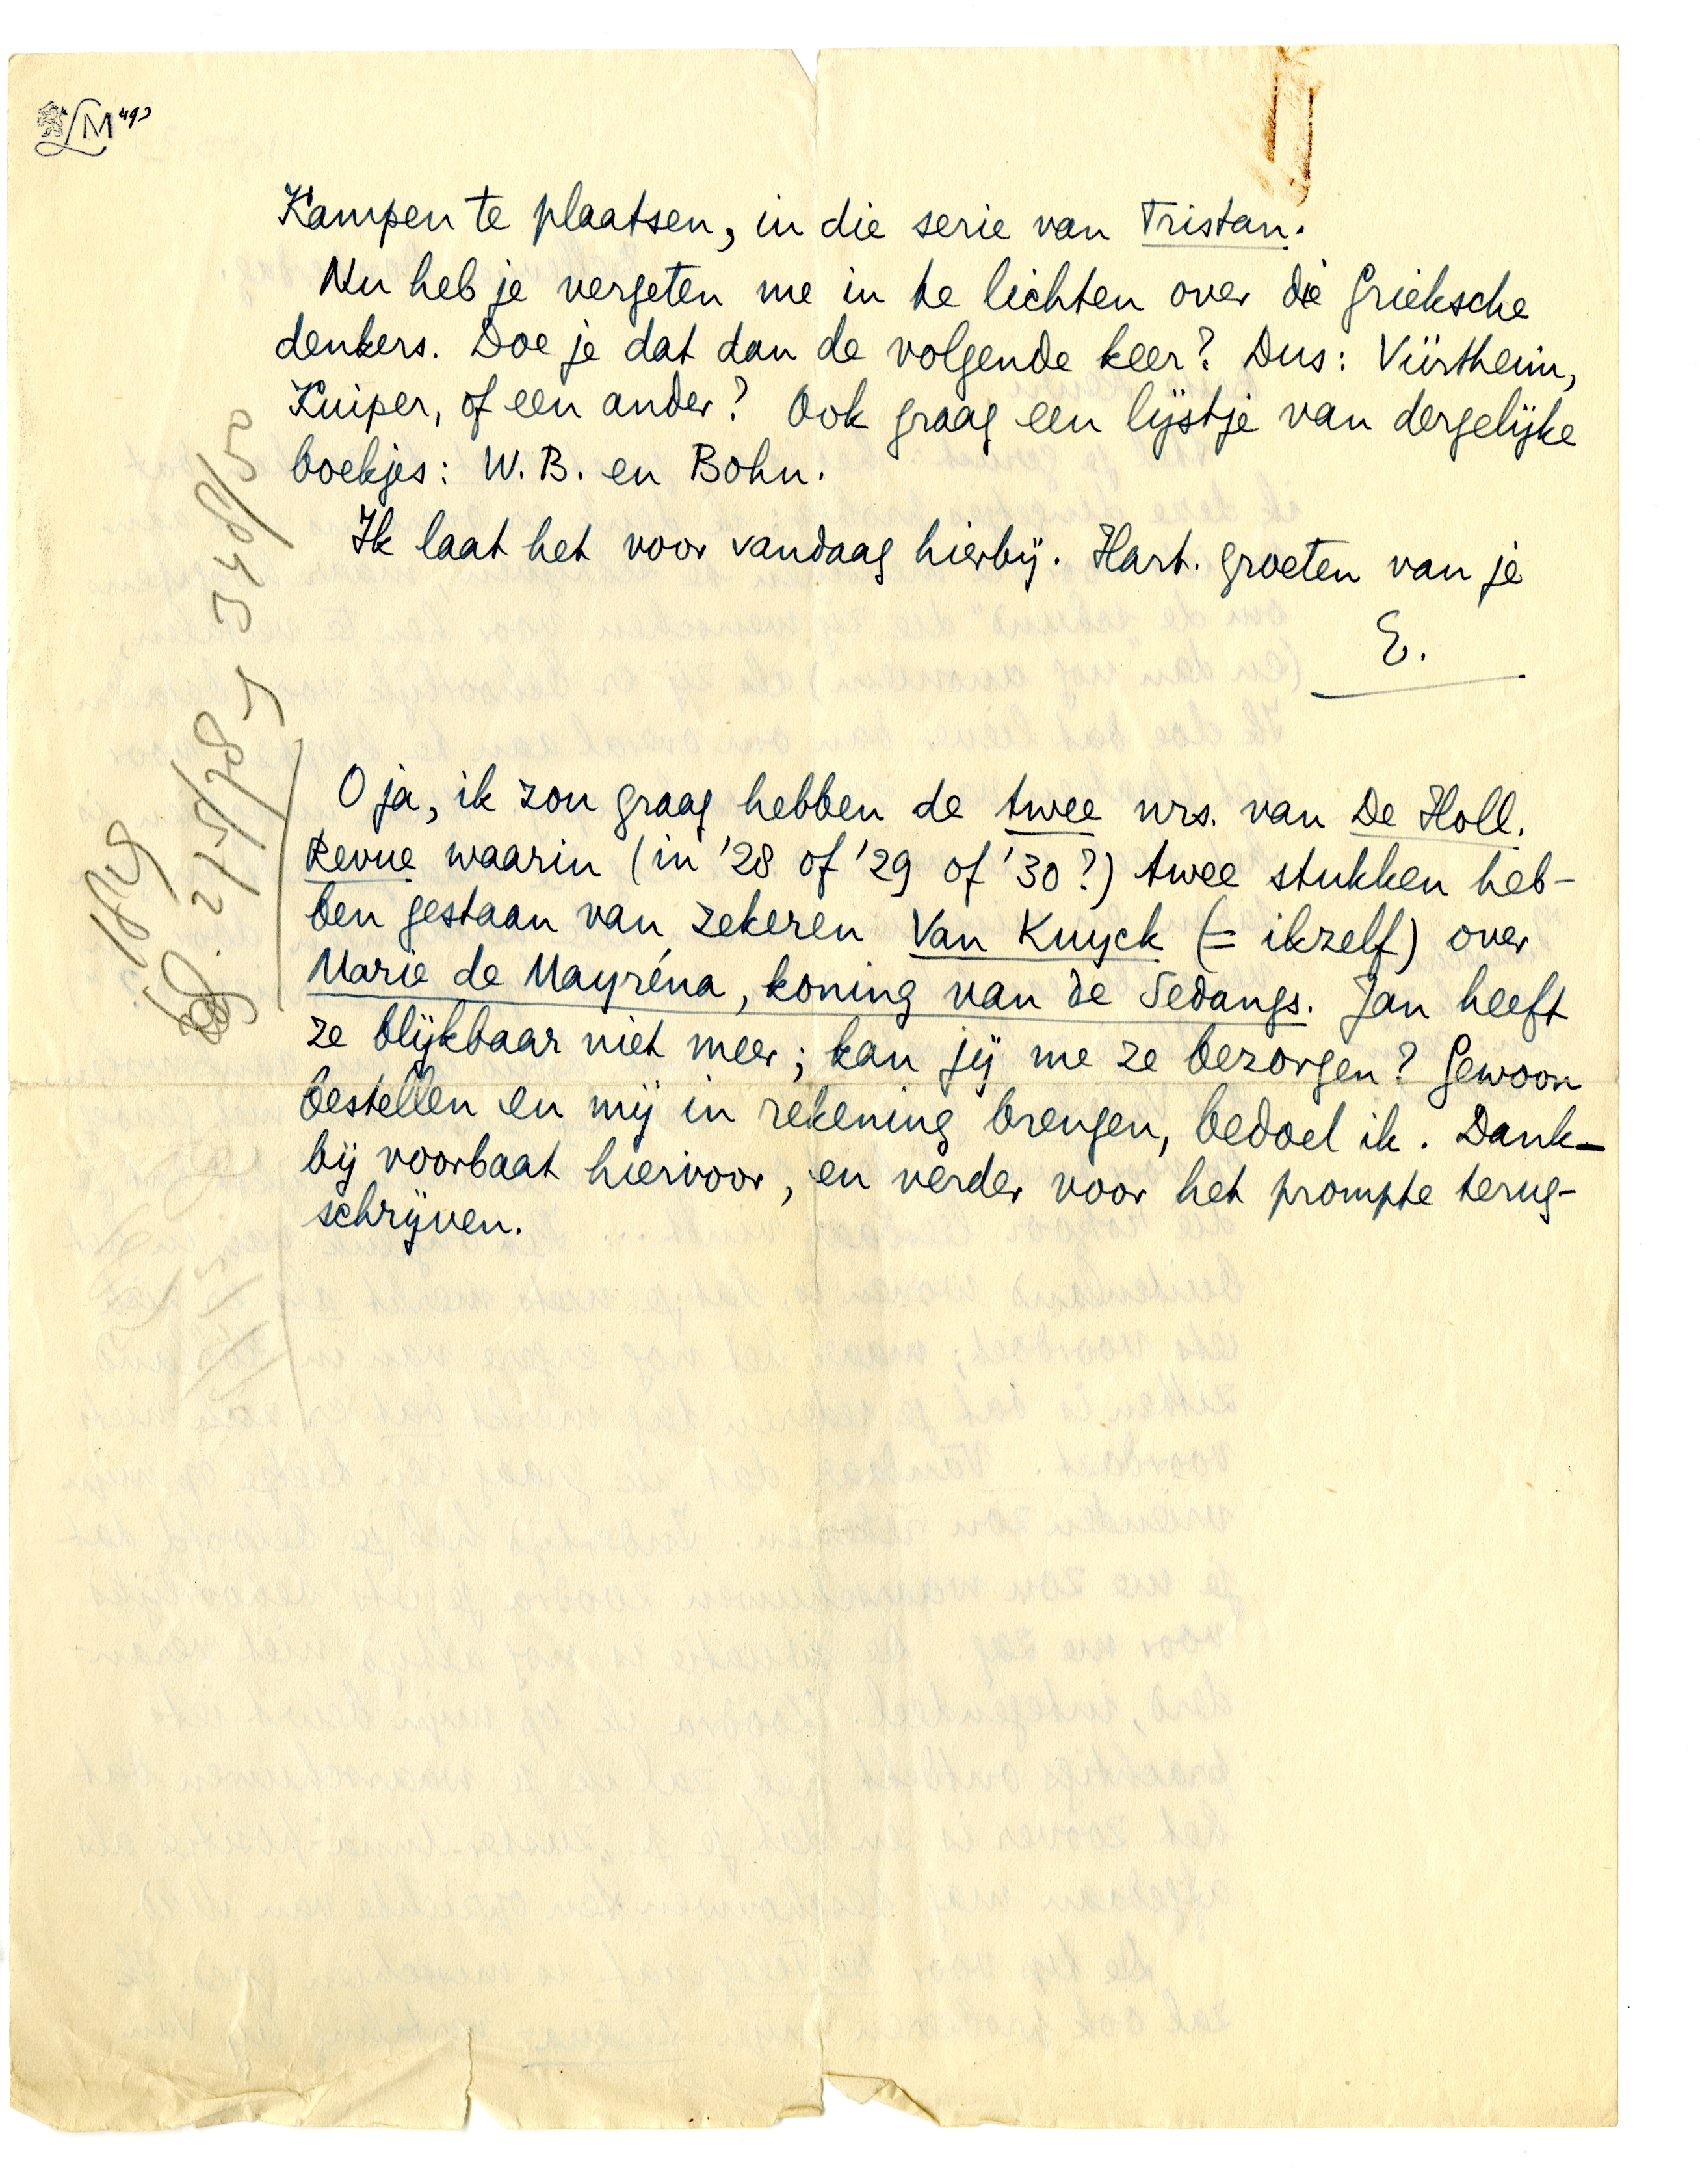 LM
Kampen te plaatsen, in die serie van Tristan.
Nu heb je vergeten me in te lichten over die Grieksche
denkers. Doe je dat dan de volgende keer? Dus: Vürtheim,
Kuiper, of een ander? Ook graag een lijstje van dergelijke
boekjes: W. B. en Bohn.
Ik laat het voor vandaag hierbij. Hart. groeten van je
E.
O ja, ik zou graag hebben de twee nrs. van De Holl.
Revue waarin (in '28 of '29 of '30?) twee stukken heb-
ben gestaan van zekeren Van Kuyck (= ikzelf) over
Marie de Mayréna, koning van de Sedangs. Jan heeft
ze blijkbaar niet meer; kan jij me ze bezorgen? Gewoon
bestellen en mij in rekening brengen, bedoel ik. Dank-
bij voorbaat hiervoor, en verder voor het prompte terug-
schrijven.